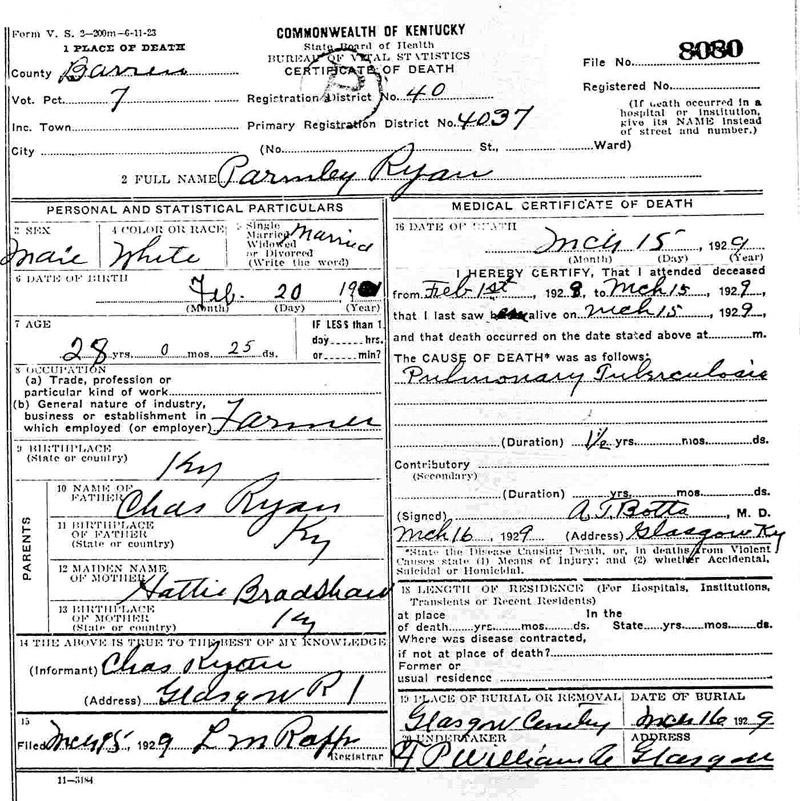 Form V. S. 3—200m—6-11-23
COMMONWEALTH OF KENTUCKY
State Board of Health
BUREAU OF VITAL STATISTICS
CERTIFICATE OF DEATH
File No. 8080
Registered No.
(If death occurred in a
hospital or institution,
give its NAME instead
of street and number.)
1 PLACE OF DEATH
County Barren
Vot. Pct. 7
Registration District No. 40
Inc. Town
Primary Registration District No. 4037
City (No. St., Ward)
2 FULL NAME Parmley Ryan
PERSONAL AND STATISTICAL PARTICULARS
3 SEX
Male
4 COLOR OR RACE
White
5 Single
Married
Widowed
or Divorced
(Write the word)
Married
6 DATE OF BIRTH
Feb. 20 1901
(Month) (Day) (Year)
7 AGE
28 yrs. 0 mos. 25 ds.
IF LESS than 1
day hrs.
or min?
8 OCCUPATION
(a) Trade, profession or
particular kind of work
(b) General nature of industry,
business or establishment in
which employed (or employer) Farmer
9 BIRTHPLACE
(State or country)
Ky
PARENTS
10 NAME OF
FATHER
Chas Ryan
11 BIRTHPLACE
OF FATHER
(State or country)
Ky
12 MAIDEN NAME
OF MOTHER
Hattie Bradshaw
13 BIRTHPLACE
OF MOTHER
(State or country)
Ky
14 THE ABOVE IS TRUE TO THE BEST OF MY KNOWLEDGE
(Informant) Chas Ryan
(Address) Glasgow R 1
15
Filed Mch 1929 L M Rapp
Registrar
11—3184
MEDICAL CERTIFICATE OF DEATH
16 DATE OF DEATH
Mch 15, 1929
(Month) (Day) (Year)
I HEREBY CERTIFY, That I attended deceased
from Feb 1st, 1928, to Mch 15, 1929,
that I last saw alive on Mch 15, 1929,
and that death occurred on the date stated above at m.
The CAUSE OF DEATH* was as follows:
Pulmonary Tuberculosis
(Duration) 1½ yrs. mos. ds.
Contributory
(Secondary)
(Duration) yrs. mos. ds.
(Signed) A T Botts, M. D.
Mch 16, 1929 (Address) Glasgow Ky
*State the Disease Causing Death, or, in deaths from Violent
Causes state (1) Means of Injury; and (2) whether Accidental,
Suicidal or Homicidal.
18 LENGTH OF RESIDENCE (For Hospitals, Institutions,
Transients or Recent Residents)
at place In the
of death yrs. mos. ds. State yrs. mos. ds.
Where was disease contracted,
if not at place of death?
Former or
usual residence
19 PLACE OF BURIAL OR REMOVAL
Glasgow
DATE OF BURIAL
Mch 16 1929
20 UNDERTAKER
ADDRESS
Glasgow